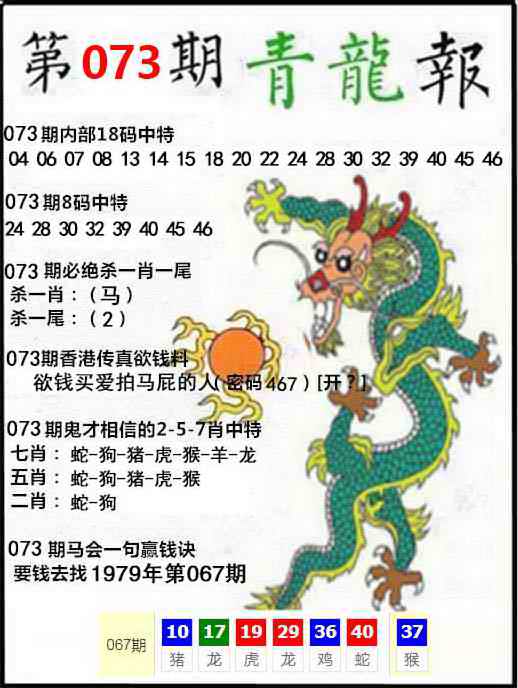 第073期 青龍報
073期内部18码中特
04 06 07 08 13 14 15 18 20 22 24 28 30 32 39 40 45 46
073期8码中特
24 28 30 32 39 40 45 46
073 期必绝杀一肖一尾
杀一肖：（马）
杀一尾：（2）
073期香港传真欲钱料
欲钱买爱拍马屁的人(密码467)[开？]
073期鬼才相信的2-5-7肖中特
七肖：蛇-狗-猪-虎-猴-羊-龙
五肖：蛇-狗-猪-虎-猴
二肖：蛇-狗
073 期马会一句赢钱诀
要钱去找1979年第067期
067期 10 17 19 29 36 40 37
猪 龙 虎 龙 鸡 蛇 猴